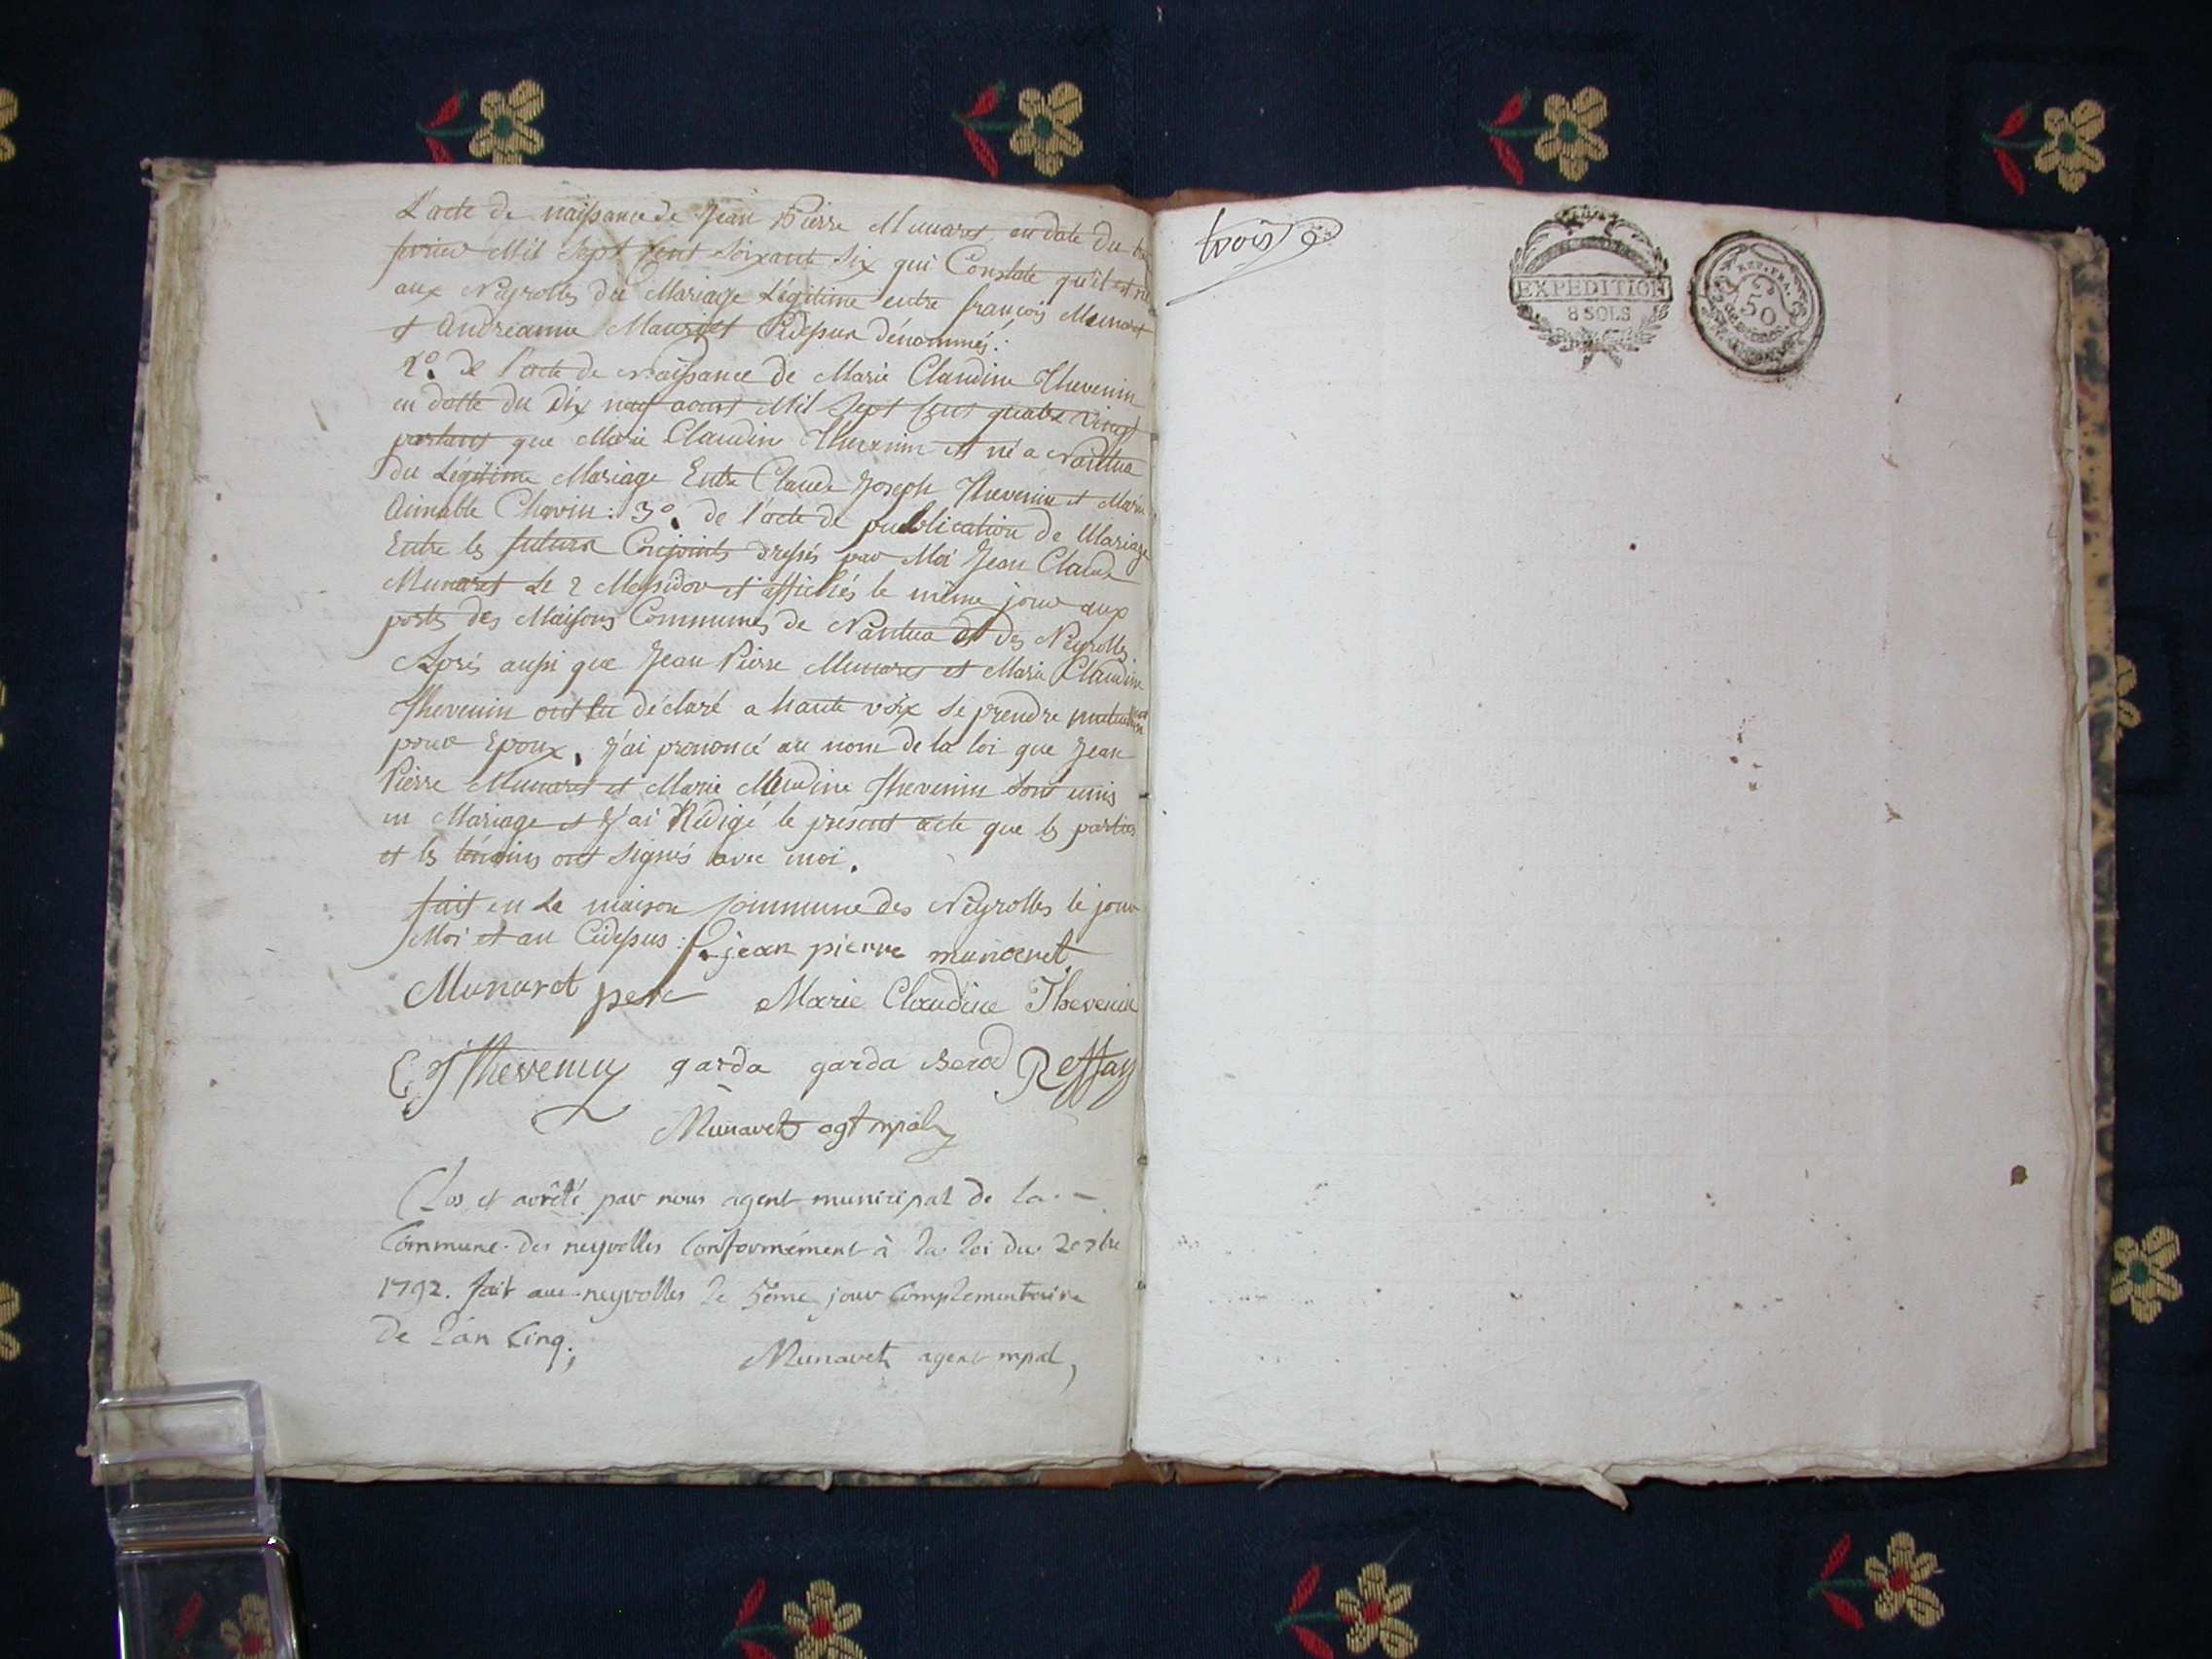 L'acte de naissance de Jean Pierre Munaret en date du
fevrier Mil Sept Cent Soixante Six qui Constate qu'il est né
aux Neyrolles du Mariage Légitime entre françois Munaret
et Andreanne Cidessus dénommés:
2º. de l'acte de Naissance de Marie Claudine Thevenin
en datte du Dix neuf aoust Mil Sept Cent quatre vingt
portant que Marie Claudine Thevenin est né a Nantua
du Légitime Mariage Entre Claude Joseph Thevenin et Marie
Aimable Chavin: 3º. de l'acte de publication de Mariage
Entre les futurs Conjoints dressés par Moi Jean Claude
Munaret Le 2 Messidor et affichés le même jour aux
portes des Maisons Communes de Nantua et des Neyrolles
Après aussi que Jean Pierre Munaret et Marie Claudine
Thevenin ont eu déclaré a haute voix se prendre mutuellement
pour Epoux, J'ai prononcé au nom de la loi que Jean
Pierre Munaret et Marie Claudine Thevenin sont unis
en Mariage et J'ai Rédigé le présent acte que les parties
et les témoins ont signés avec moi.
fait en La maison Commune des Neyrolles le jour
Moi et an Cidessus: jean pierre munaret
Munaret pere Marie Claudine Thevenin
C J Thevenin garda garda Berod Reffay
Munaret agt mpal
Clos et arrêté par nous agent municipal de la
Commune des neyrolles Conformément à la loi du 20 7bre
1792. fait aux neyrolles le 5ème jour Complementaire
de l'an Cinq.
Munaret agent mpal
trois
EXPEDITION
8 SOLS
REP. FRA.
50